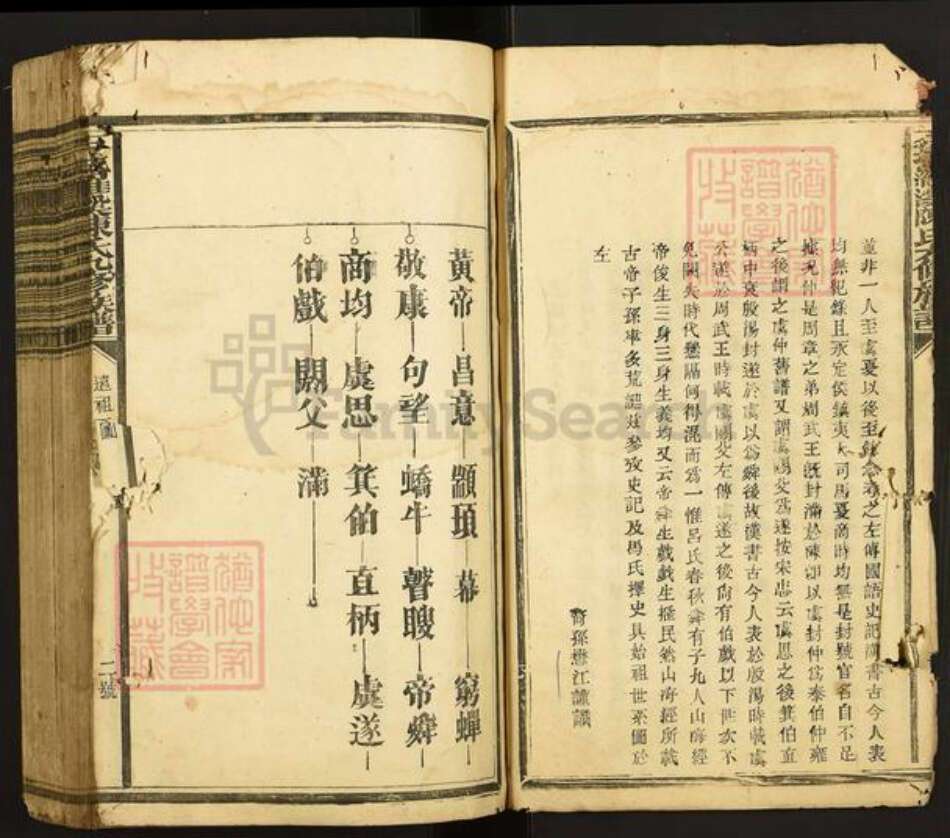 並非一人至虞夏以後至
之左傳國語史記漢書古今人表
均無
且永定侯鎮夷大司馬夏商時均無是封號官名自不足
據況仲是周章之弟周武王既封滿於陳卽以虞封仲為泰伯仲雍
之後謂之虞仲舊譜又謂虞閼父為遂按宋忠云虞思之後箕伯直
柄中衰殷湯封遂於虞以為舜後故漢書古今人表於殷湯時載虞
公遂於周武王時載虞閼父左傳虞遂之後尙有伯戲以下世次不
免闕失時代懸隔何得混而為一惟呂氏春秋舜有子九人山海經
帝俊生三身三身生義均又云帝舜生戲戲生搖民然山海經所載
古帝子孫率多荒謬茲參攷史記及馬氏擇史具始祖世系圖於
左
裔孫懋江謹識
黃帝 昌意 顓頊 幕 窮蟬
敬康 句望 蟜牛 瞽瞍 帝舜
商均 虞思 箕伯 直柄 虞遂
伯戲 閼父 滿
遠祖圖
二號
陳氏 修族譜
FamilySearch